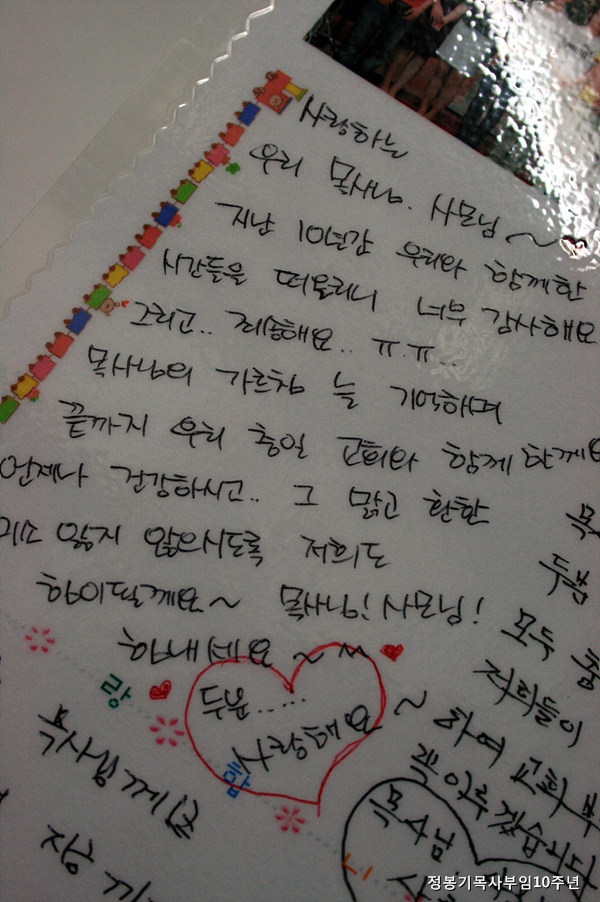 사랑하는
우리 목사님. 사모님~
지난 10년간 우리와 함께한
시간들을 떠올리니 너무 감사해요
그리고.. 죄송해요.. ㅠ.ㅠ..
목사님의 가르침 늘 기억하며
끝까지 우리 충일 교회와 함께 할께요
언제나 건강하시고.. 그 맑고 환한
미소 잃지 않으시도록 저희도
힘이될께요~ 목사님! 사모님!
힘내세요~^^
두분......
사랑해요~
랑
함
기
목사님께
목
두분
모두
저희들이
하여 교회
꼭 이루겠습니다
목사님
정봉기목사부임10주년